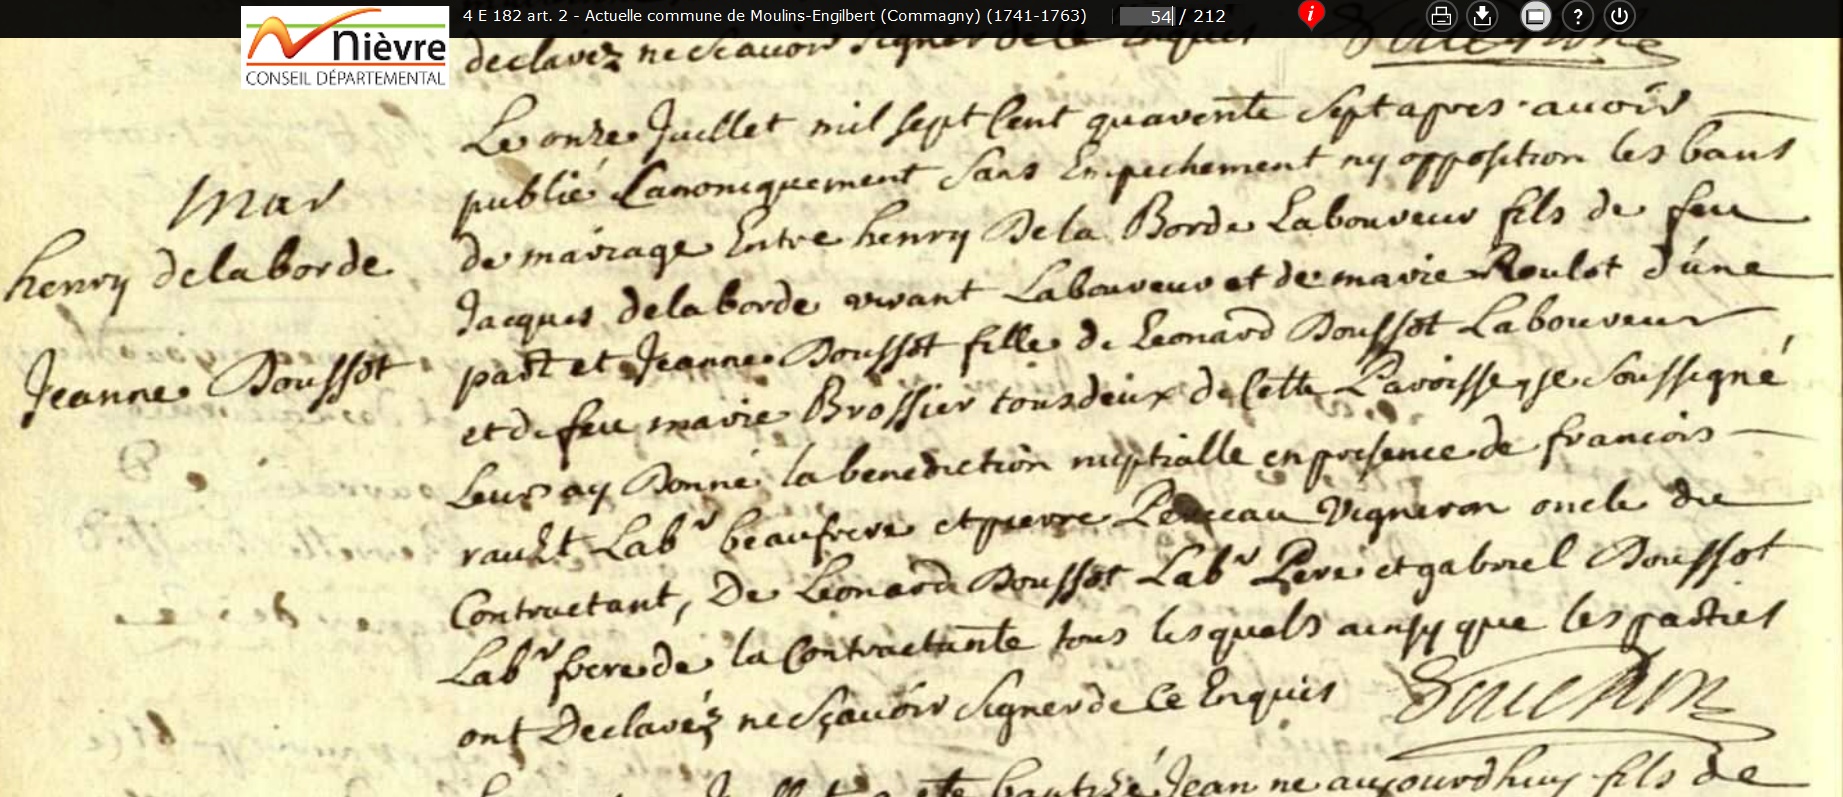 4 E 182 art. 2 - Actuelle commune de Moulins-Engilbert (Commagny) (1741-1763)
54 / 212
Nièvre
CONSEIL DÉPARTEMENTAL
declarez ne scavoir signer de ce Enquis
Le onze Juillet mil sept Cent quarente sept apres avoir
publié Canoniquement sans Enpechement ny opposition les bans
mar
de mariage Entre henry De la Borde Laboureur fils de feu
henry delaborde
Jacques delaborde vivant Laboureur et de marie Roulot d'une
part et Jeanne Doussot fille de Leonard Doussot Laboureur
Jeanne Doussot
et de feu marie Brossier tous deux de Cette Paroisse, je soussigné
Leurs ay Donné la benediction nuptialle en presence de francois
rault Labr beaufrere et pierre vigneron oncle du
Contractant, De Leonard Doussot Labr Pere et gabriel Doussot
Labr frere de la Contractante tous lesquels ainsy que les parties
ont Declaréz ne sçavoir signer de Ce Enquis
baptizé Jean ne aujourdhuy fils de